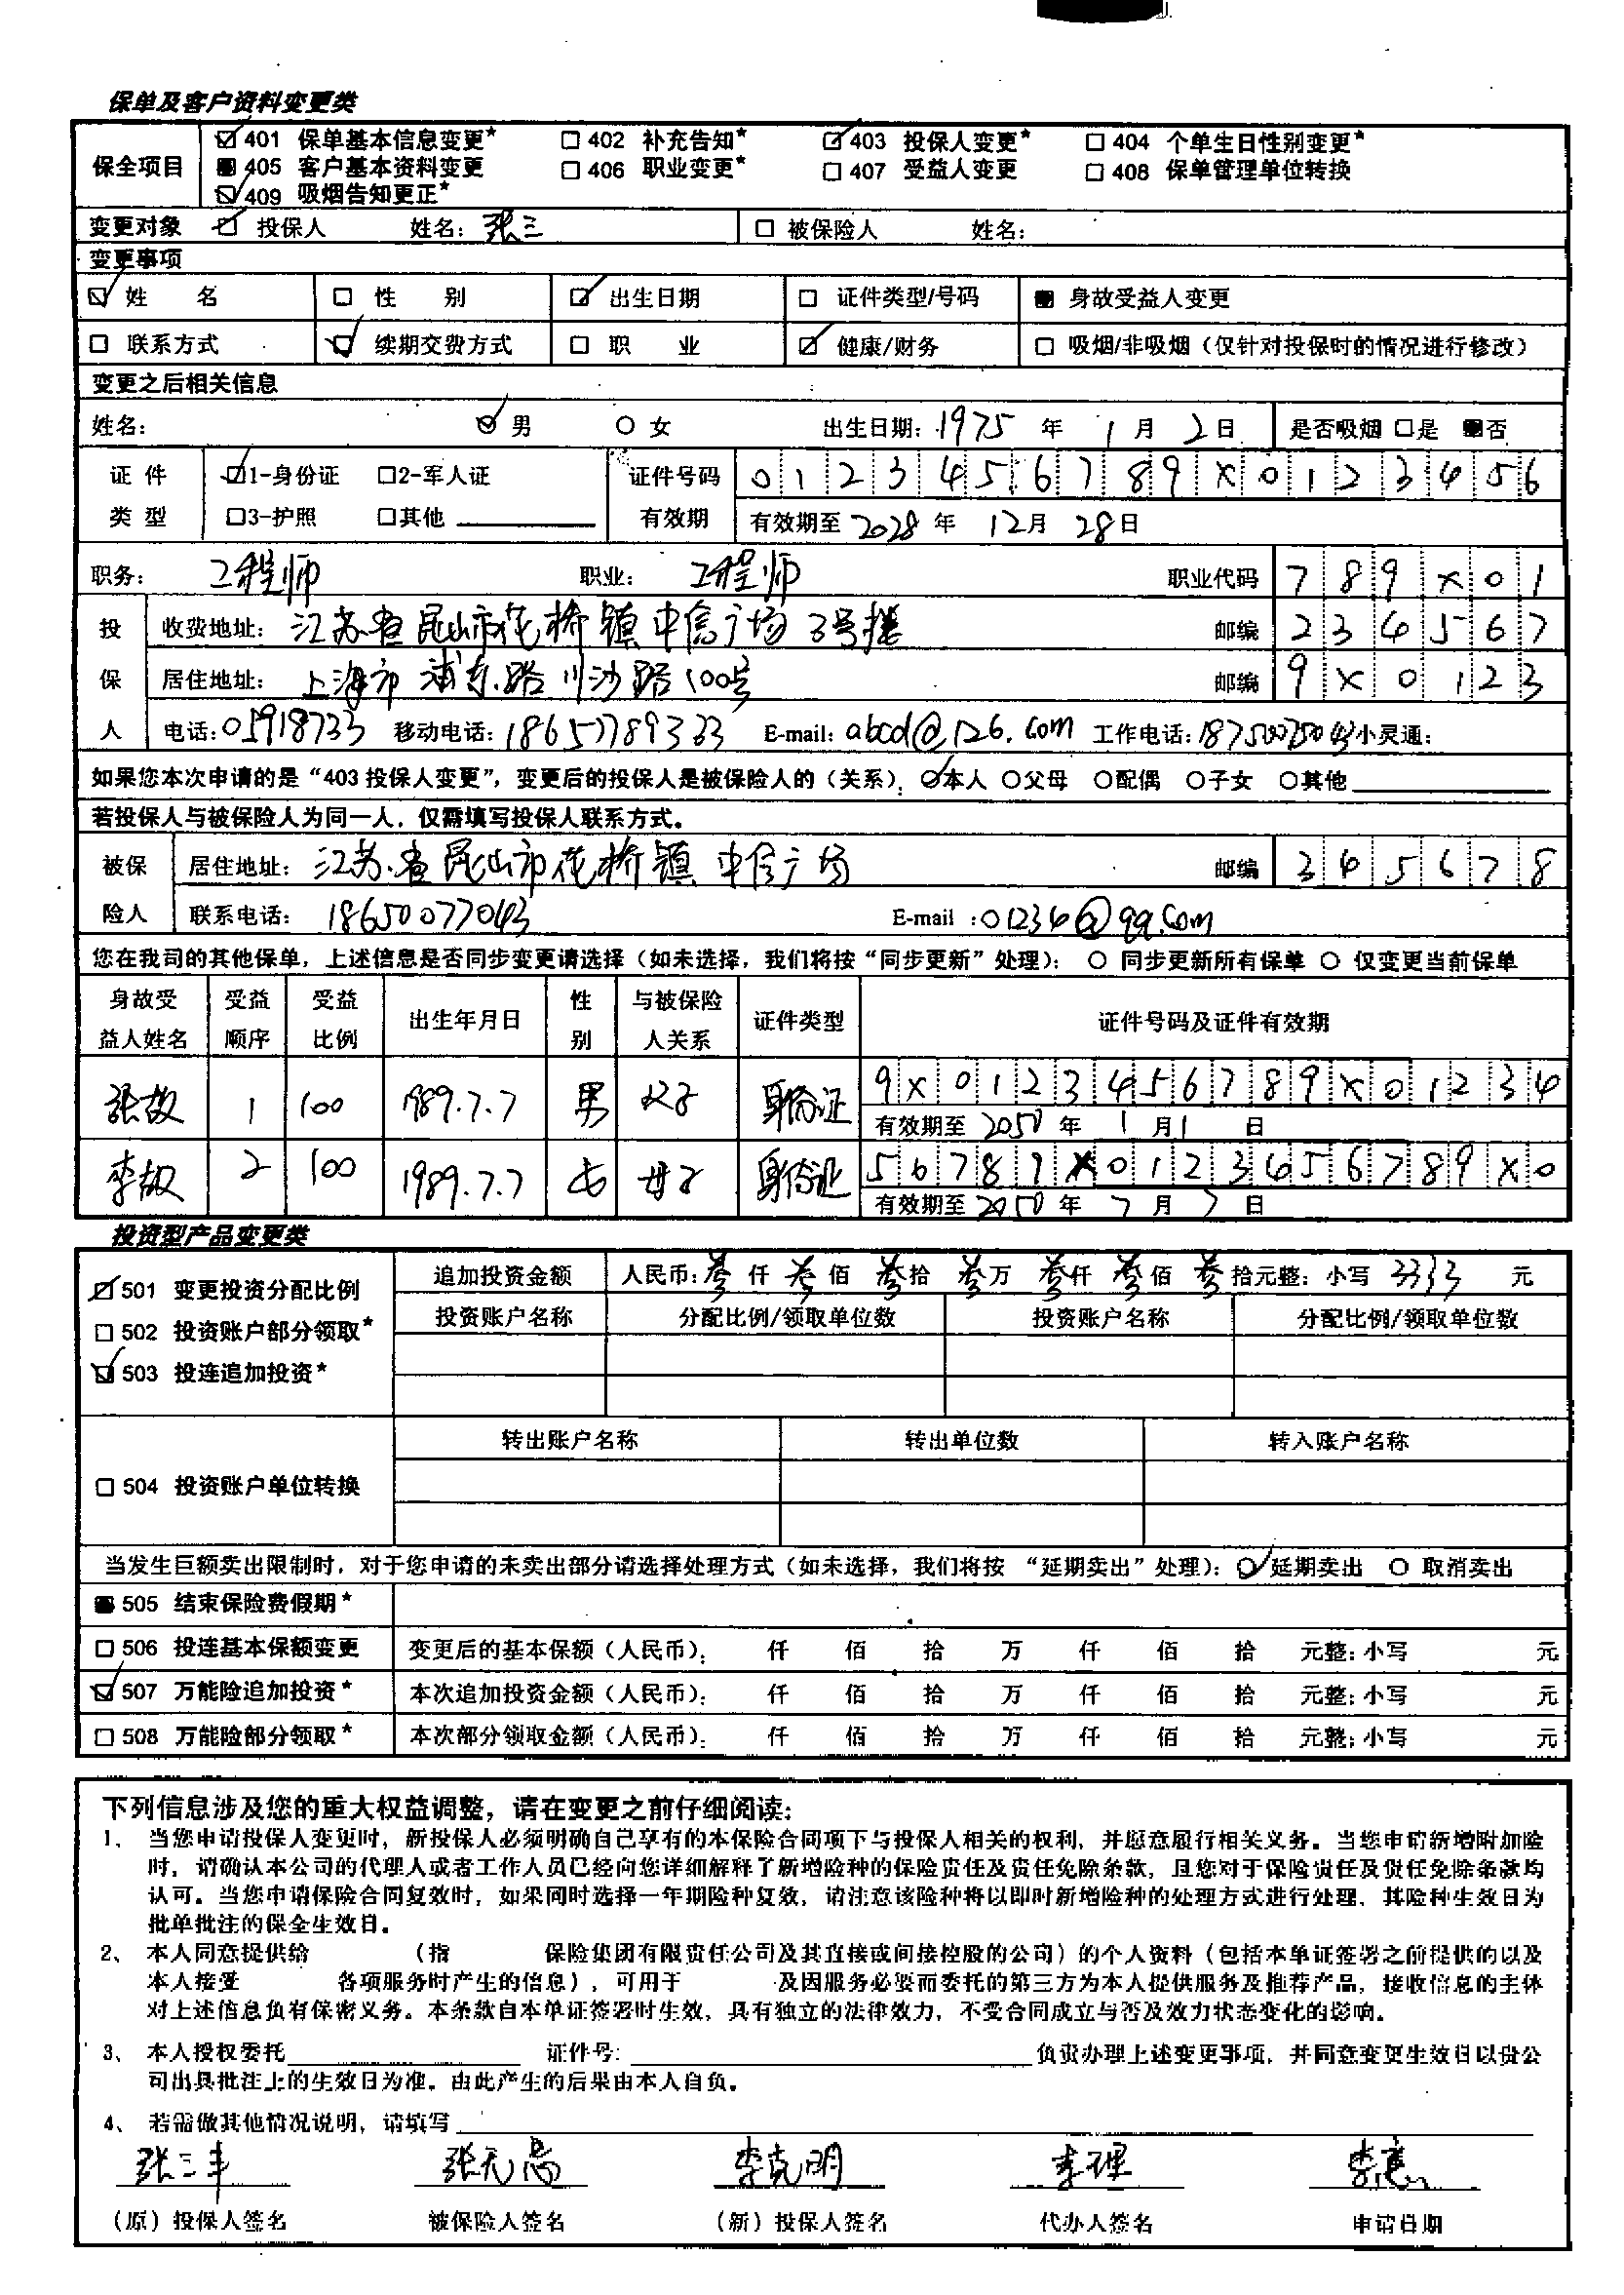 保单及客户资料变更类
保全项目
☑ 401 保单基本信息变更* □ 402 补充告知* ☑ 403 投保人变更* □ 404 个单生日性别变更*
■ 405 客户基本资料变更 □ 406 职业变更* □ 407 受益人变更 □ 408 保单管理单位转换
☑ 409 吸烟告知更正*
变更对象 ☑ 投保人 姓名: 张三 □ 被保险人 姓名:
变更事项
☑ 姓 名 □ 性 别 ☑ 出生日期 □ 证件类型/号码 ■ 身故受益人变更
□ 联系方式 ☑ 续期交费方式 □ 职 业 ☑ 健康/财务 □ 吸烟/非吸烟（仅针对投保时的情况进行修改）
变更之后相关信息
姓名: ☑ 男 ○ 女 出生日期: 1975 年 1 月 2 日 是否吸烟 □是 ■否
证件类型 ☑1-身份证 □2-军人证 证件号码 0 1 2 3 4 5 6 7 8 9 X 0 1 2 3 4 5 6
□3-护照 □其他 有效期 有效期至 2028 年 12 月 28 日
职务: 工程师 职业: 工程师 职业代码 7 8 9 X 0 1
投保人
收费地址: 江苏省昆山市花桥镇中信广场3号楼 邮编 2 3 4 5 6 7
居住地址: 上海市浦东路川沙路100号 邮编 9 X 0 1 2 3
电话: 05918733 移动电话: 18657789333 E-mail: abcd@126.com 工作电话: 小灵通:
如果您本次申请的是“403 投保人变更”，变更后的投保人是被保险人的（关系）: ☑本人 ○父母 ○配偶 ○子女 ○其他
若投保人与被保险人为同一人，仅需填写投保人联系方式。
被保险人
居住地址: 江苏省昆山市花桥镇中信广场 邮编 3 4 5 6 7 8
联系电话: 18650077043 E-mail :01234@qq.com
您在我司的其他保单，上述信息是否同步变更请选择（如未选择，我们将按“同步更新”处理）: ○ 同步更新所有保单 ○ 仅变更当前保单
身故受益人姓名 受益顺序 受益比例 出生年月日 性别 与被保险人关系 证件类型 证件号码及证件有效期
张故 1 100 1989.7.7 男 父子 身份证 9 X 0 1 2 3 4 5 6 7 8 9 X 0 1 2 3 4
有效期至 2050 年 1 月 1 日
李故 2 100 1989.7.7 女 母子 身份证 5 6 7 8 9 X 0 1 2 3 4 5 6 7 8 9 X 0
有效期至 2050 年 7 月 7 日
投资型产品变更类
☑ 501 变更投资分配比例
□ 502 投资账户部分领取*
☑ 503 投连追加投资*
追加投资金额 人民币: 叁 仟 叁 佰 叁 拾 叁 万 叁 仟 叁 佰 叁 拾元整: 小写 3333 元
投资账户名称 分配比例/领取单位数 投资账户名称 分配比例/领取单位数
转出账户名称 转出单位数 转入账户名称
□ 504 投资账户单位转换
当发生巨额卖出限制时，对于您申请的未卖出部分请选择处理方式（如未选择，我们将按 “延期卖出”处理）: ☑ 延期卖出 ○ 取消卖出
■ 505 结束保险费假期*
□ 506 投连基本保额变更 变更后的基本保额（人民币）: 仟 佰 拾 万 仟 佰 拾 元整: 小写 元
☑ 507 万能险追加投资* 本次追加投资金额（人民币）: 仟 佰 拾 万 仟 佰 拾 元整: 小写 元
□ 508 万能险部分领取* 本次部分领取金额（人民币）: 仟 佰 拾 万 仟 佰 拾 元整: 小写 元
下列信息涉及您的重大权益调整，请在变更之前仔细阅读:
1、 当您申请投保人变更时，新投保人必须明确自己享有的本保险合同项下与投保人相关的权利，并愿意履行相关义务。当您申请新增附加险
时，请确认本公司的代理人或者工作人员已经向您详细解释了新增险种的保险责任及责任免除条款，且您对于保险责任及责任免除条款均
认可。当您申请保险合同复效时，如果同时选择一年期险种复效，请注意该险种将以即时新增险种的处理方式进行处理，其险种生效日为
批单批注的保全生效日。
2、 本人同意提供给 （指 保险集团有限责任公司及其直接或间接控股的公司）的个人资料（包括本单证签署之前提供的以及
本人接受 各项服务时产生的信息），可用于 及因服务必要而委托的第三方为本人提供服务及推荐产品，接收信息的主体
对上述信息负有保密义务。本条款自本单证签署时生效，具有独立的法律效力，不受合同成立与否及效力状态变化的影响。
3、 本人授权委托 证件号: 负责办理上述变更事项，并同意变更生效日以贵公
司出具批注上的生效日为准，由此产生的后果由本人自负。
4、 若需做其他情况说明，请填写
张三丰 张无忌 李克明 李理
（原）投保人签名 被保险人签名 （新）投保人签名 代办人签名 申请日期